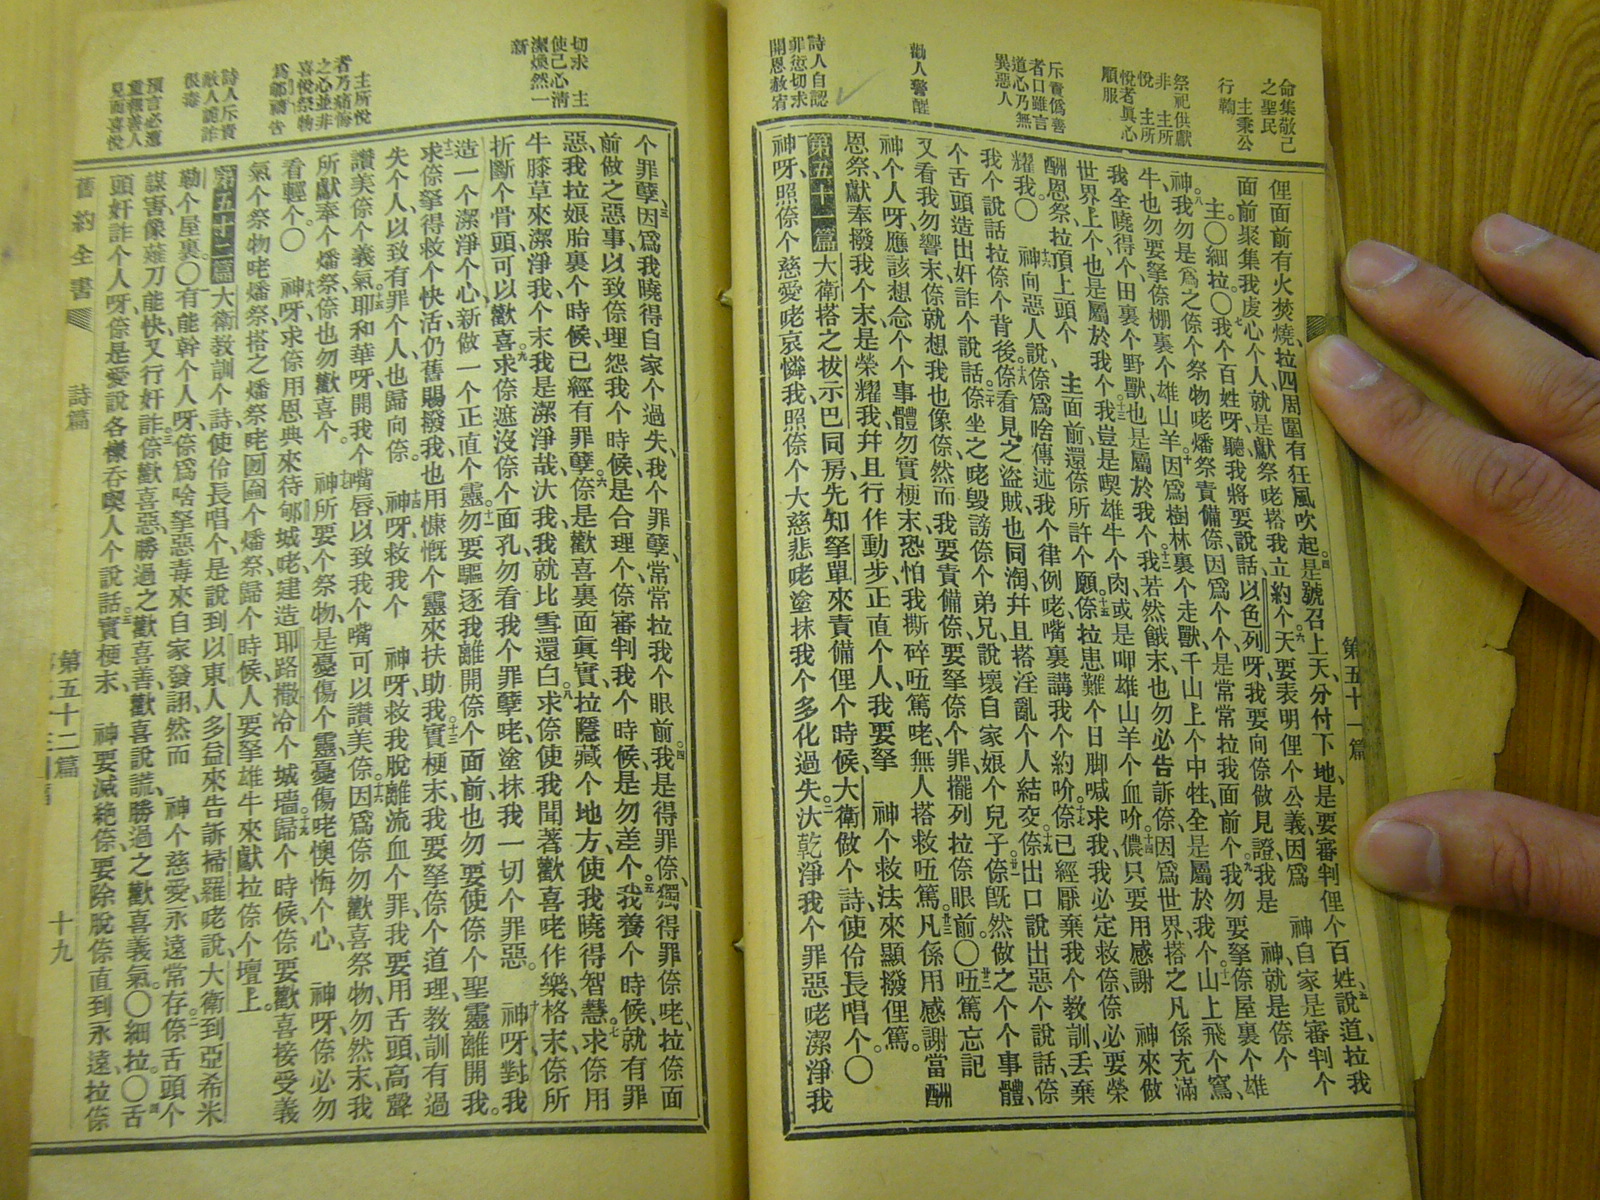 命集敬己
之聖民
主秉公
行鞫
祭祀供獻
非 主所
悅 主所
悅者眞心
順服
斥責僞善
者口雖言
道心乃無
異惡人
勸人警醒
詩人自認
罪愆切求
開恩赦宥
俚面前有火焚燒、拉四周圍有狂風吹起。四是號召上天、分付下地、是要審判俚个百姓、說道、五拉我
面前聚集我虔心个人、就是獻祭咾搭我立約个。六天要表明俚个公義、因爲 神自家是審判个
主。〇細拉〇七我个百姓呀、聽我將要說話、以色列呀、我要向倷做見證、我是 神、就是倷个
神。八我勿是爲之倷个祭物咾燔祭責備倷、因爲个个是常常拉我面前个。九我勿要拏倷屋裏个雄
牛、也勿要拏倷棚裏个雄山羊。十因爲樹林裏个走獸、千山上个中牲、全是屬於我个。十一山上飛个窩、
我全曉得个、田裏个野獸、也是屬於我个。十二我若然餓末、也勿必告訴倷、因爲世界、搭之凡係充滿
世界上个、也是屬於我个。十三我豈是喫雄牛个肉、或是呷雄山羊个血吤。十四儂只要用感謝 神來做
酬恩祭、拉頂上頭个 主面前、還倷所許个願。十五倷拉患難个日脚喊求我、我必定救倷、倷必要榮
耀我。〇十六 神向惡人說、倷爲啥傳述我个律例、咾嘴裏講我个約吤。十七倷已經厭棄我个教訓、丟棄
我个說話拉倷个背後。十八倷看見之盜賊、也同淘、幷且搭淫亂个人結交。十九倷出口說出惡个說話、倷
个舌頭造出奸詐个說話。二十倷坐之咾毀謗倷个弟兄、說壞自家娘个兒子。廿一倷旣然做之个个事體、
又看我勿響末、倷就想我也像倷、然而我要責備倷、要拏倷个罪、擺列拉倷眼前。〇廿二㕶篤忘記
神个人呀、應該想念个个事體、勿實梗末、恐怕我撕碎㕶篤咾、無人搭救㕶篤。廿三凡係用感謝當酬
恩祭、獻奉撥我个末、是榮耀我、幷且行作動步正直个人、我要拏 神个救法來顯撥俚篤。
第五十一篇 大衛搭之拔示巴同房、先知拏單來責備俚个時候、大衛做个詩、使伶長唱个〇
神呀、照倷个慈愛咾哀憐我、照倷个大慈悲咾塗抹我个多化過失。二汏乾淨我个罪惡咾潔淨我
第五十一篇
切求 主
使己心淸
潔煥然一
新
主所悅
者乃痛悔
之心並非
喜悅祭物
爲郇禱告
詩人斥責
敵人詭詐
狠毒
預言必遭
重報善人
見而喜悅
个罪孽。三因爲我曉得自家个過失、我个罪孽、常常拉我个眼前。四我是得罪倷、獨得罪倷咾、拉倷面
前做之惡事、以致倷埋怨我个時候、是合理个、倷審判我个時候、是勿差个。五我養个時候、就有罪
惡、我拉娘胎裏个時候、已經有罪孽。六倷是歡喜裏面眞實、拉隱藏个地方、使我曉得智慧。七求倷用
牛膝草來潔淨我个末、我是潔淨哉、汏我、我就比雪還白。八求倷使我聞著歡喜咾作樂、格末、倷所
折斷个骨頭、可以歡喜。九求倷遮沒倷个面孔、勿看我个罪孽咾、塗抹我一切个罪惡。十 神呀、對我
造一个潔淨个心、新做一个正直个靈。十一勿要驅逐我離開倷个面前、也勿要使倷个聖靈離開我。
十二求倷拏得救个快活、仍舊賜撥我、也用慷慨个靈來扶助我。十三實梗末、我要拏倷个道理、教訓有過
失个人、以致有罪个人、也歸向倷。十四 神呀、救我个 神呀、救我脫離流血个罪、我要用舌頭高聲
讚美倷个義氣。十五耶和華呀、開我个嘴唇、以致我个嘴可以讚美倷。十六因爲倷勿歡喜祭物、勿然末、我
所獻奉个燔祭、倷也勿歡喜个。十七 神所要个祭物、是憂傷个靈、憂傷咾懊悔个心、 神呀、倷必勿
看輕个。〇十八 神呀、求倷用恩典來待郇城咾、建造耶路撒冷个城墻。十九歸个時候、倷要歡喜接受義
氣个祭物咾燔祭、搭之燔祭咾囫圇个燔祭、歸个時候、人要拏雄牛來獻拉倷个壇上。
第五十二篇 大衛教訓个詩、使伶長唱个、是說到以東人多益來告訴掃羅咾說、大衛到亞希米
勒个屋裏。〇有能幹个人呀、倷爲啥拏惡毒來自家發詡、然而 神个慈愛、永遠常存。二倷舌頭个
謀害、像薙刀能快、又行奸詐。三倷歡喜惡、勝過之歡喜善、歡喜說謊、勝過之歡喜義氣。〇細拉。〇四舌
頭奸詐个人呀、倷是愛說各樣吞喫人个說話。五實梗末、 神要滅絶倷、要除脫倷直到永遠、拉倷
舊約全書 詩篇 第五十二篇 十九